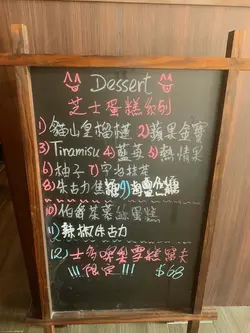 Dessert
芝士蛋糕系列
1) 貓山皇榴槤 2) 蘋果金寶
3) Tinamisu 4) 藍莓 5) 熱情果
6) 柚子 7) 宇治抹茶
8) 朱古力
10) 伯爵茶慕絲蛋糕
11) 辣椒朱古力
12) 士多啤梨雪糕窩夫
!!! 限定 !!! $68